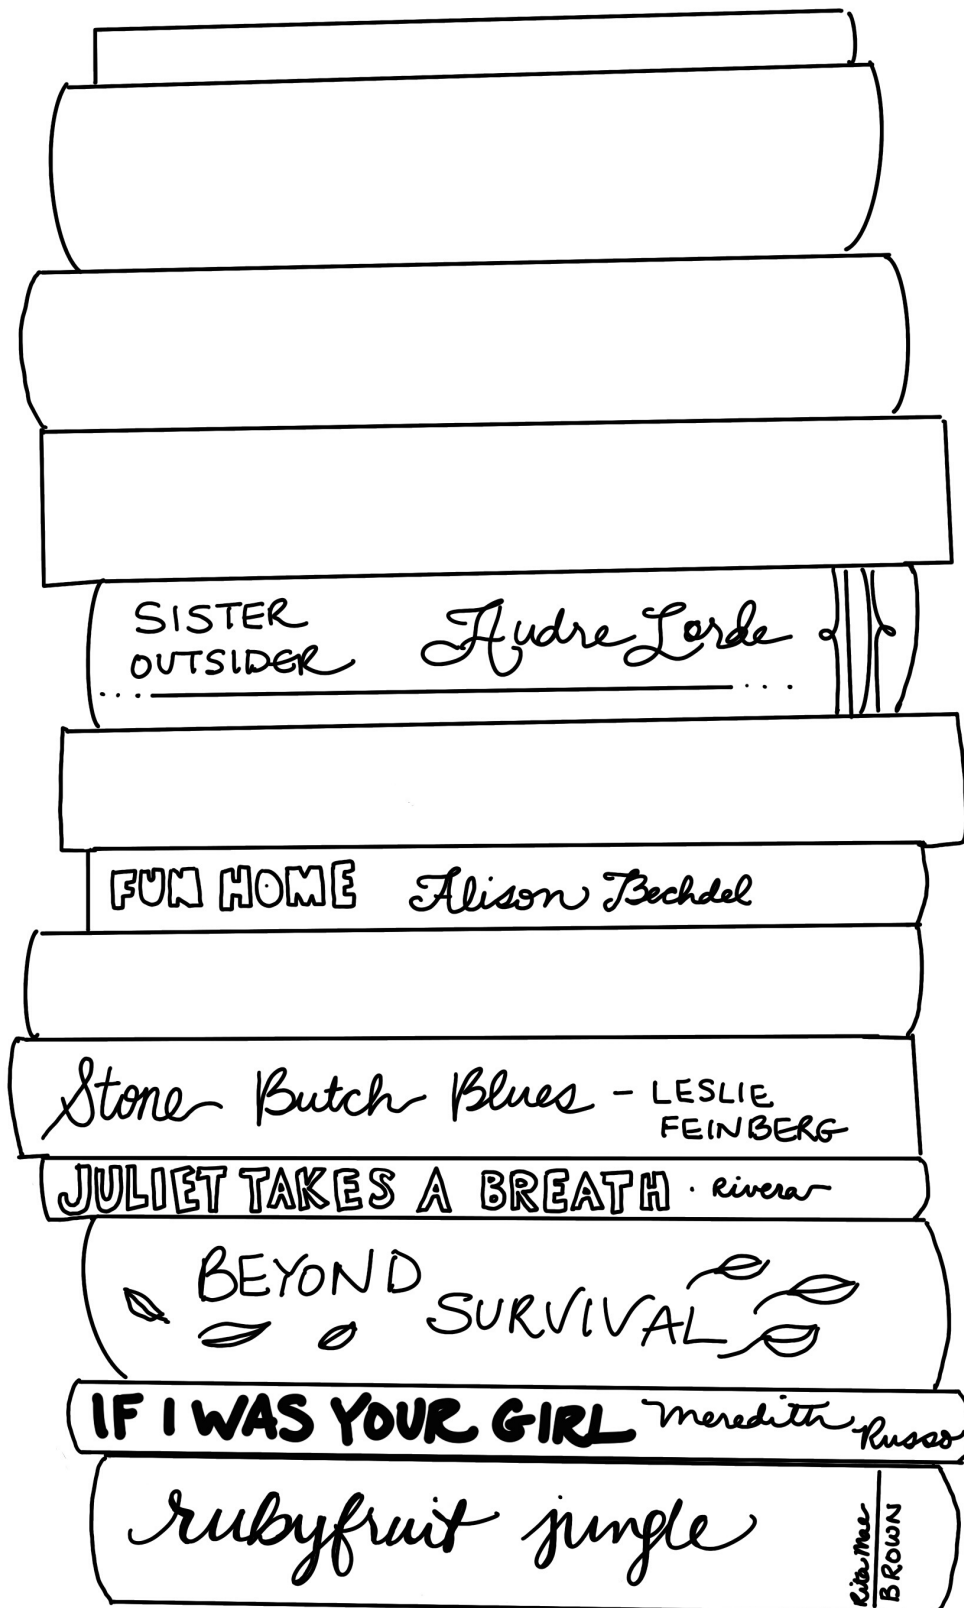 SISTER
OUTSIDER
Audre Lorde
FUN HOME Alison Bechdel
Stone Butch Blues - LESLIE
FEINBERG
JULIET TAKES A BREATH · Rivera
BEYOND
SURVIVAL
IF I WAS YOUR GIRL Meredith
Russo
rubyfruit jungle
Rita Mae
BROWN